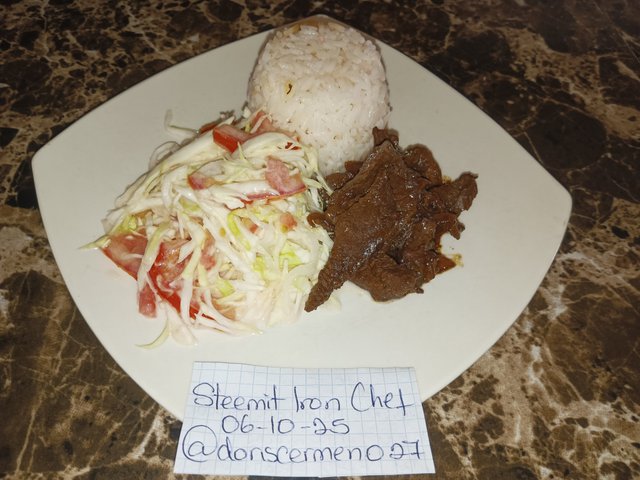 Steemit Iron Chef
06-10-25
@doriscermeno27